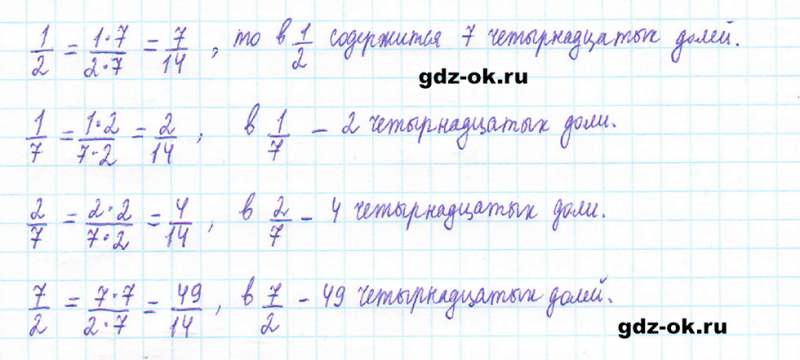 1/2 = 1·7/2·7 = 7/14, то в 1/2 содержится 7 четырнадцатых долей.
gdz-ok.ru
1/7 = 1·2/7·2 = 2/14, в 1/7 – 2 четырнадцатых доли.
2/7 = 2·2/7·2 = 4/14, в 2/7 – 4 четырнадцатых доли.
7/2 = 7·7/2·7 = 49/14, в 7/2 – 49 четырнадцатых долей.
gdz-ok.ru